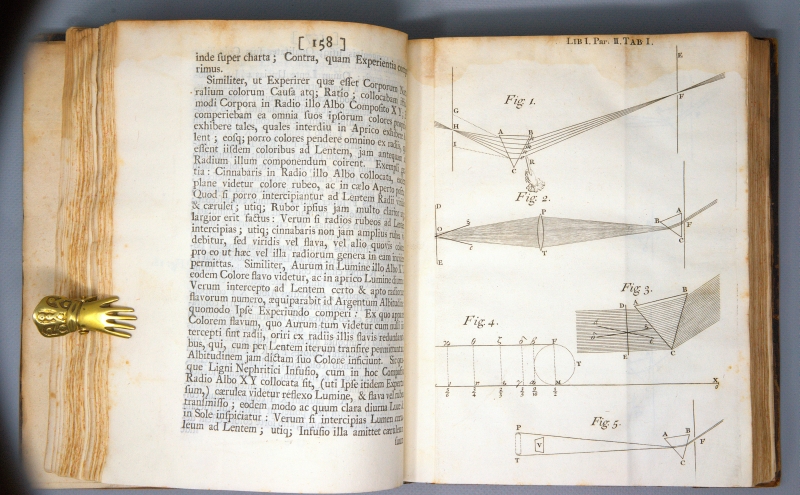 [ 158 ]
inde super charta; Contra, quam Experientia
rimus.
Similiter, ut Experirer quæ esset Corporum
ralium colorum Causa atq; Ratio; collocabam
modi Corpora in Radio illo Albo Composito X Y;
comperiebam ea omnia suos ipsorum colores
exhibere tales, quales interdiu in Aprico exhibere
lent; eosq; porro colores pendere omnino ex radiis,
essent iisdem coloribus ad Lentem, jam antequam
Radium illum componendum coirent.
tia: Cinnabaris in Radio illo Albo collocata,
plane videtur colore rubeo, ac in cælo Aperto
Quod si porro intercipiantur ad Lentem Radii
& cærulei; utiq; Rubor ipsius jam multo clarior
largior erit factus: Verum si radios rubeos ad
intercipias; utiq; cinnabaris non jam amplius
debitur, sed viridis vel flava, vel alio quovis
pro eo ut hæc vel illa radiorum genera in eam
permittas. Similiter, Aurum in Lumine illo Albo X
eodem Colore flavo videtur, ac in aprico Lumine
Verum intercepto ad Lentem certo & apto
flavorum numero, æquiparabit id Argentum
quomodo Ipse Experiundo comperi: Ex quo
Colorem flavum, quo Aurum tum videtur cum nulli
tercepti sint radii, oriri ex radiis illis flavis
bus, qui, cum per Lentem iterum transire permittantur
Albitudinem jam dictam suo Colore inficiunt.
que Ligni Nephritici Infusio, cum in hoc
Radio Albo XY collocata sit, (uti Ipse itidem
sum,) cærulea videtur reflexo Lumine, & flava vel
transmisso; eodem modo ac quum clara diurna Luce
in Sole inspiciatur: Verum si intercipias Lumen
leum ad Lentem; utiq; Infusio illa amittet
LIB I. Par. II. TAB I.
E
Fig. 1.
F
G
H
A
B
I
R
C
Fig. 2.
D
P
A
O
B
F
C
T
E
Fig. 3.
B
D
A
E
C
Fig. 4.
F
T
M
X
Fig. 5.
P
A
B
V
F
T
C